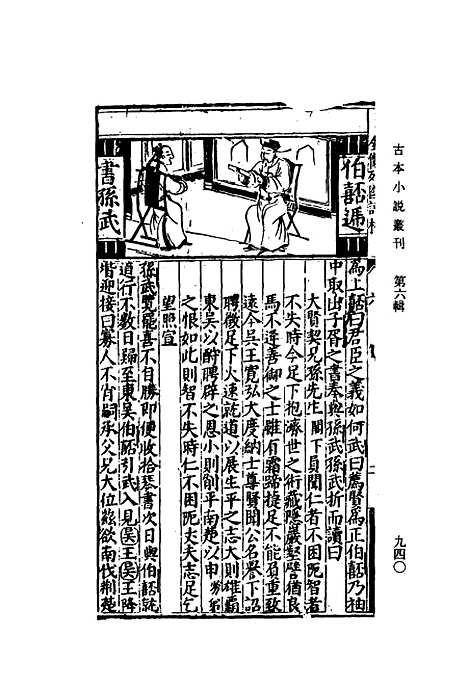 古本小説叢刊　第六輯
九四〇
伯嚭遞
書孫武
為上嚭曰君臣之義如何武曰薦賢為正伯嚭乃袖
中取出子胥之書奉與孫武孫武折而讀曰
大賢契兄孫先生閣下員聞仁者不困阨智者
不失時今足下抱濟世之術藏隱巖壑譬猶良
馬不逢善御之士雖有霜蹄捷足不能負重致
遠今吳王寬弘大度納士尊賢聞公名譽下詔
聘徵足下火速就道以展生平之志大則雄霸
東吳以酧聘辟之恩小則削平南楚以申
之恨如此則智不失時仁不困阨丈夫志足乞
望照宣
孫武覽罷喜不自勝即便收拾琴書次日與伯嚭就
道行不數日歸至東吳伯嚭引武入見吳王吳王降
堦迎接曰寡人不肖嗣承父兄大位玆欲南伐荆楚